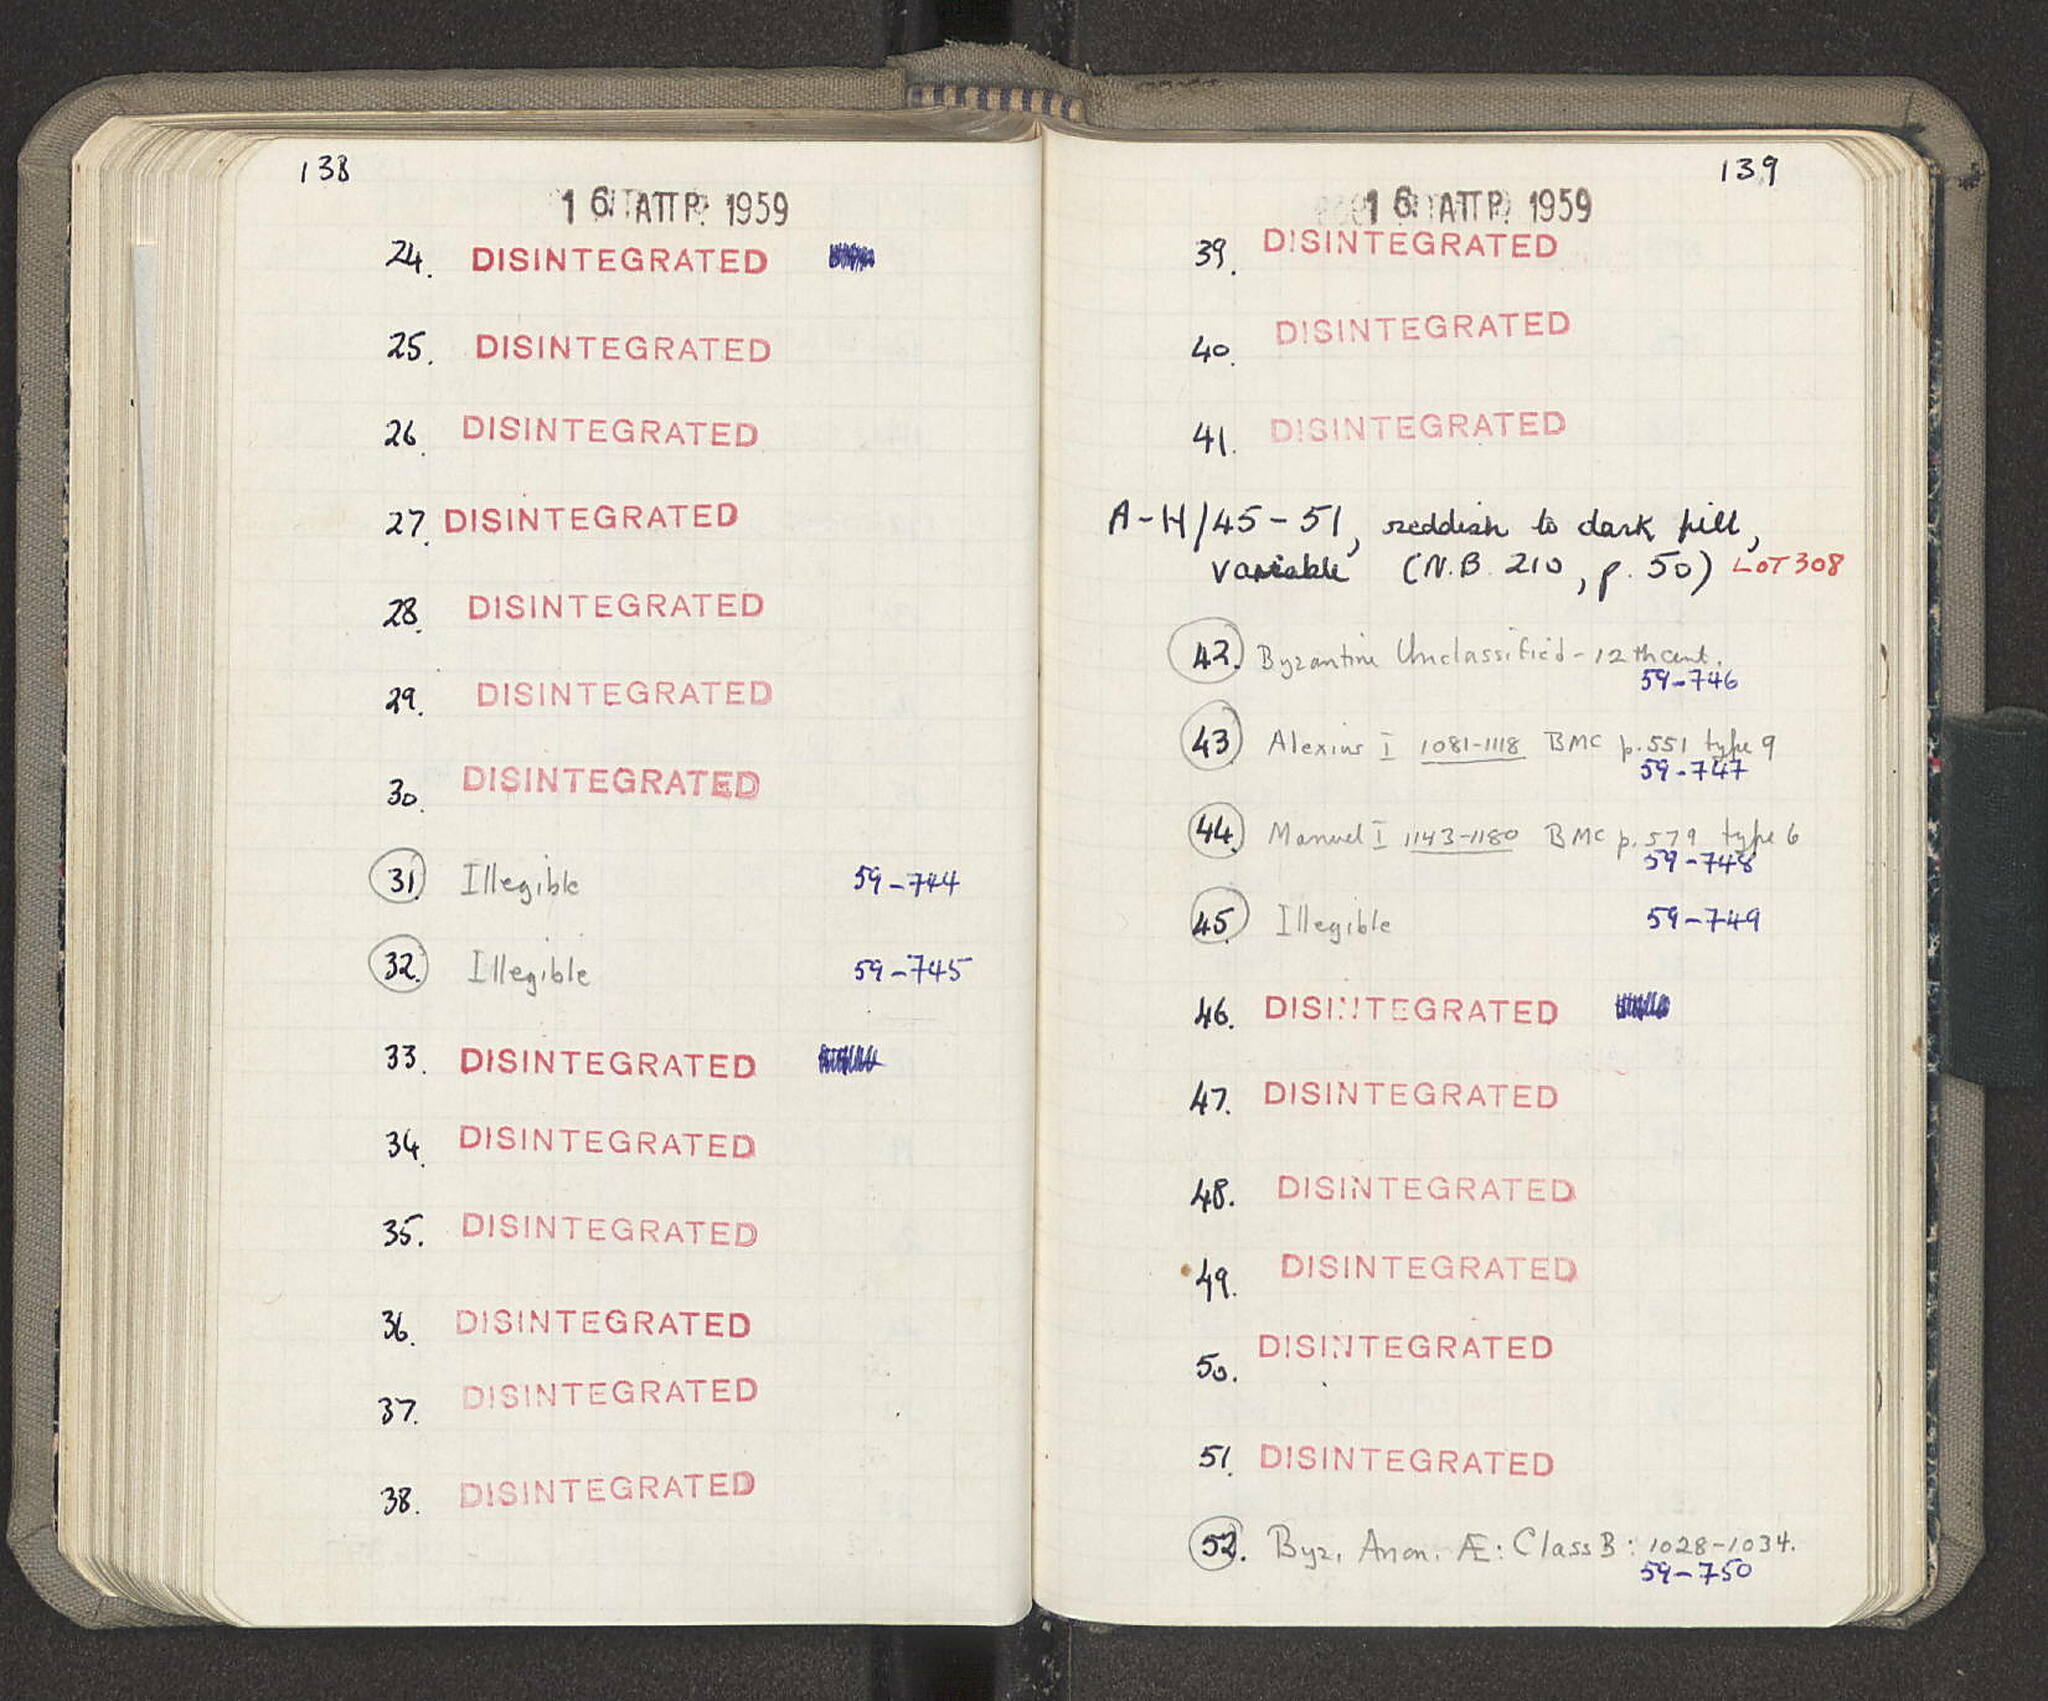 138
16 ΑΠΡ. 1959
24. DISINTEGRATED
25. DISINTEGRATED
26. DISINTEGRATED
27. DISINTEGRATED
28. DISINTEGRATED
29. DISINTEGRATED
30. DISINTEGRATED
31. Illegible 59-744
32. Illegible 59-745
33. DISINTEGRATED
34. DISINTEGRATED
35. DISINTEGRATED
36. DISINTEGRATED
37. DISINTEGRATED
38. DISINTEGRATED
139
16 ΑΠΡ. 1959
39. DISINTEGRATED
40. DISINTEGRATED
41. DISINTEGRATED
A-H/45-51, reddish to dark fill,
variable (N.B. 210, p. 50) LOT 308
42. Byzantine Unclassified - 12th cent.
59-746
43. Alexius I 1081-1118 BMC p.551 type 9
59-747
44. Manuel I 1143-1180 BMC p.579 type 6
59-748
45. Illegible 59-749
46. DISINTEGRATED
47. DISINTEGRATED
48. DISINTEGRATED
49. DISINTEGRATED
50. DISINTEGRATED
51. DISINTEGRATED
52. Byz. Anon. Æ: Class B: 1028-1034.
59-750